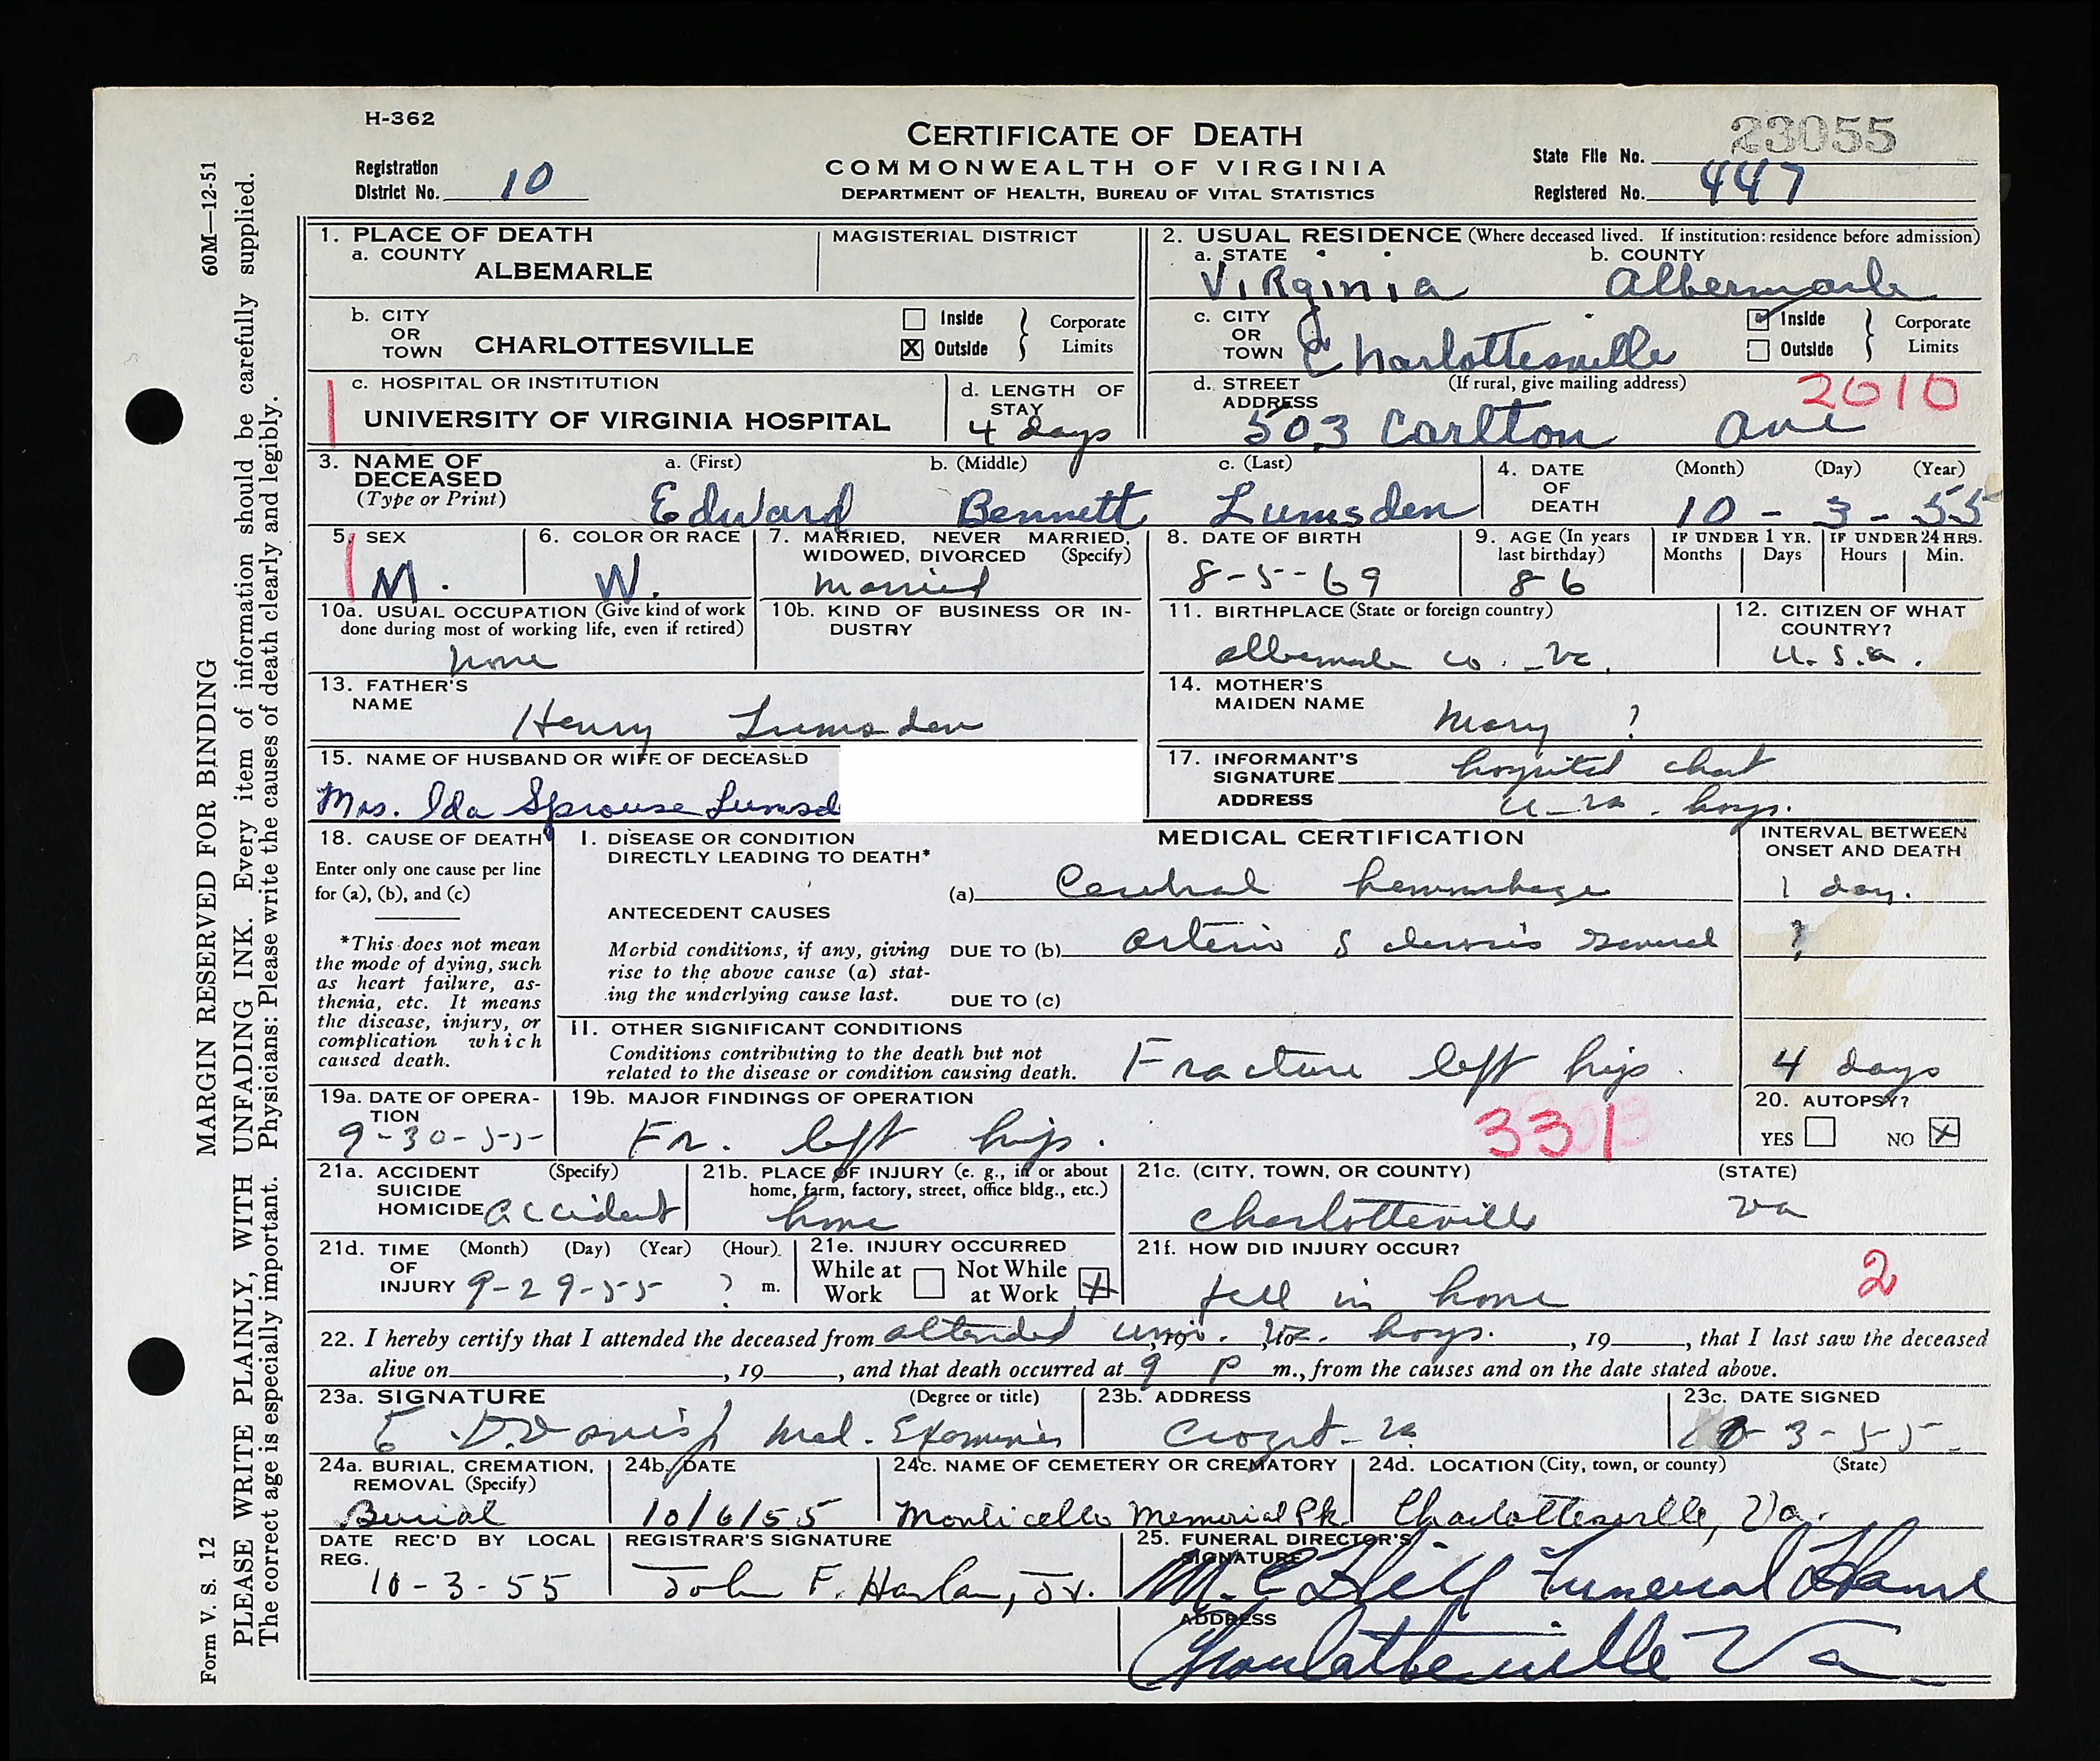 H-362
CERTIFICATE OF DEATH
COMMONWEALTH OF VIRGINIA
DEPARTMENT OF HEALTH, BUREAU OF VITAL STATISTICS
Registration
District No. 10
State File No. 23055
Registered No. 447
60M—12-51
MARGIN RESERVED FOR BINDING
PLEASE WRITE PLAINLY, WITH UNFADING INK. Every item of information should be carefully supplied.
The correct age is especially important. Physicians: Please write the causes of death clearly and legibly.
Form V. S. 12
1. PLACE OF DEATH
a. COUNTY
ALBEMARLE
MAGISTERIAL DISTRICT
b. CITY
OR
TOWN CHARLOTTESVILLE
Inside
X Outside
Corporate
Limits
c. HOSPITAL OR INSTITUTION
UNIVERSITY OF VIRGINIA HOSPITAL
d. LENGTH OF
STAY
4 days
2. USUAL RESIDENCE (Where deceased lived. If institution: residence before admission)
a. STATE
Virginia
b. COUNTY
Albermarle
c. CITY
OR
TOWN Charlottesville
Inside
Outside
Corporate
Limits
d. STREET (If rural, give mailing address)
ADDRESS
2010
503 Carlton Ave
3. NAME OF
DECEASED
(Type or Print)
a. (First) b. (Middle) c. (Last)
Edward Bennett Lumsden
4. DATE
OF
DEATH
(Month) (Day) (Year)
10 - 3 - 55
5. SEX
M.
6. COLOR OR RACE
W.
7. MARRIED, NEVER MARRIED,
WIDOWED, DIVORCED (Specify)
Married
8. DATE OF BIRTH
8-5-69
9. AGE (In years
last birthday)
86
IF UNDER 1 YR.
Months Days
IF UNDER 24 HRS.
Hours Min.
10a. USUAL OCCUPATION (Give kind of work
done during most of working life, even if retired)
none
10b. KIND OF BUSINESS OR IN-
DUSTRY
11. BIRTHPLACE (State or foreign country)
albemarle co. Va.
12. CITIZEN OF WHAT
COUNTRY?
U.S.a.
13. FATHER'S
NAME
Henry Lumsden
14. MOTHER'S
MAIDEN NAME
Mary ?
15. NAME OF HUSBAND OR WIFE OF DECEASED
Mrs. Ida Sprouse Lumsd
17. INFORMANT'S
SIGNATURE hospital chart
ADDRESS U. Va. hosp.
18. CAUSE OF DEATH
Enter only one cause per line
for (a), (b), and (c)
*This does not mean
the mode of dying, such
as heart failure, as-
thenia, etc. It means
the disease, injury, or
complication which
caused death.
MEDICAL CERTIFICATION
INTERVAL BETWEEN
ONSET AND DEATH
I. DISEASE OR CONDITION
DIRECTLY LEADING TO DEATH*
(a) Cerebral hemorrhage 1 day.
ANTECEDENT CAUSES
Morbid conditions, if any, giving
rise to the above cause (a) stat-
ing the underlying cause last.
DUE TO (b) arterio sclerosis general ?
DUE TO (c)
II. OTHER SIGNIFICANT CONDITIONS
Conditions contributing to the death but not
related to the disease or condition causing death.
Fracture left hip. 4 days
19a. DATE OF OPERA-
TION
9-30-55
19b. MAJOR FINDINGS OF OPERATION
Fr. left hip.
331
20. AUTOPSY?
YES NO X
21a. ACCIDENT (Specify)
SUICIDE
HOMICIDE accident
21b. PLACE OF INJURY (e. g., in or about
home, farm, factory, street, office bldg., etc.)
home
21c. (CITY, TOWN, OR COUNTY) (STATE)
Charlotteville Va
21d. TIME (Month) (Day) (Year) (Hour)
OF
INJURY 9-29-55 ? m.
21e. INJURY OCCURRED
While at
Work
Not While
at Work X
21f. HOW DID INJURY OCCUR?
fell in home
2
22. I hereby certify that I attended the deceased from attended univ. Va. hosp., 19, to, 19, that I last saw the deceased
alive on, 19, and that death occurred at 9 P m., from the causes and on the date stated above.
23a. SIGNATURE (Degree or title)
E. D. Davis Jr Med. Examiner
23b. ADDRESS
Crozet - Va
23c. DATE SIGNED
10-3-55
24a. BURIAL, CREMATION,
REMOVAL (Specify)
Burial
24b. DATE
10/6/55
24c. NAME OF CEMETERY OR CREMATORY
Monticello Memorial Pk
24d. LOCATION (City, town, or county) (State)
Charlottesville, Va.
DATE REC'D BY LOCAL
REG.
10-3-55
REGISTRAR'S SIGNATURE
John F. Harlan, Jr.
25. FUNERAL DIRECTOR'S
SIGNATURE
M. C Hill Funeral Home
ADDRESS
Charlottesville Va